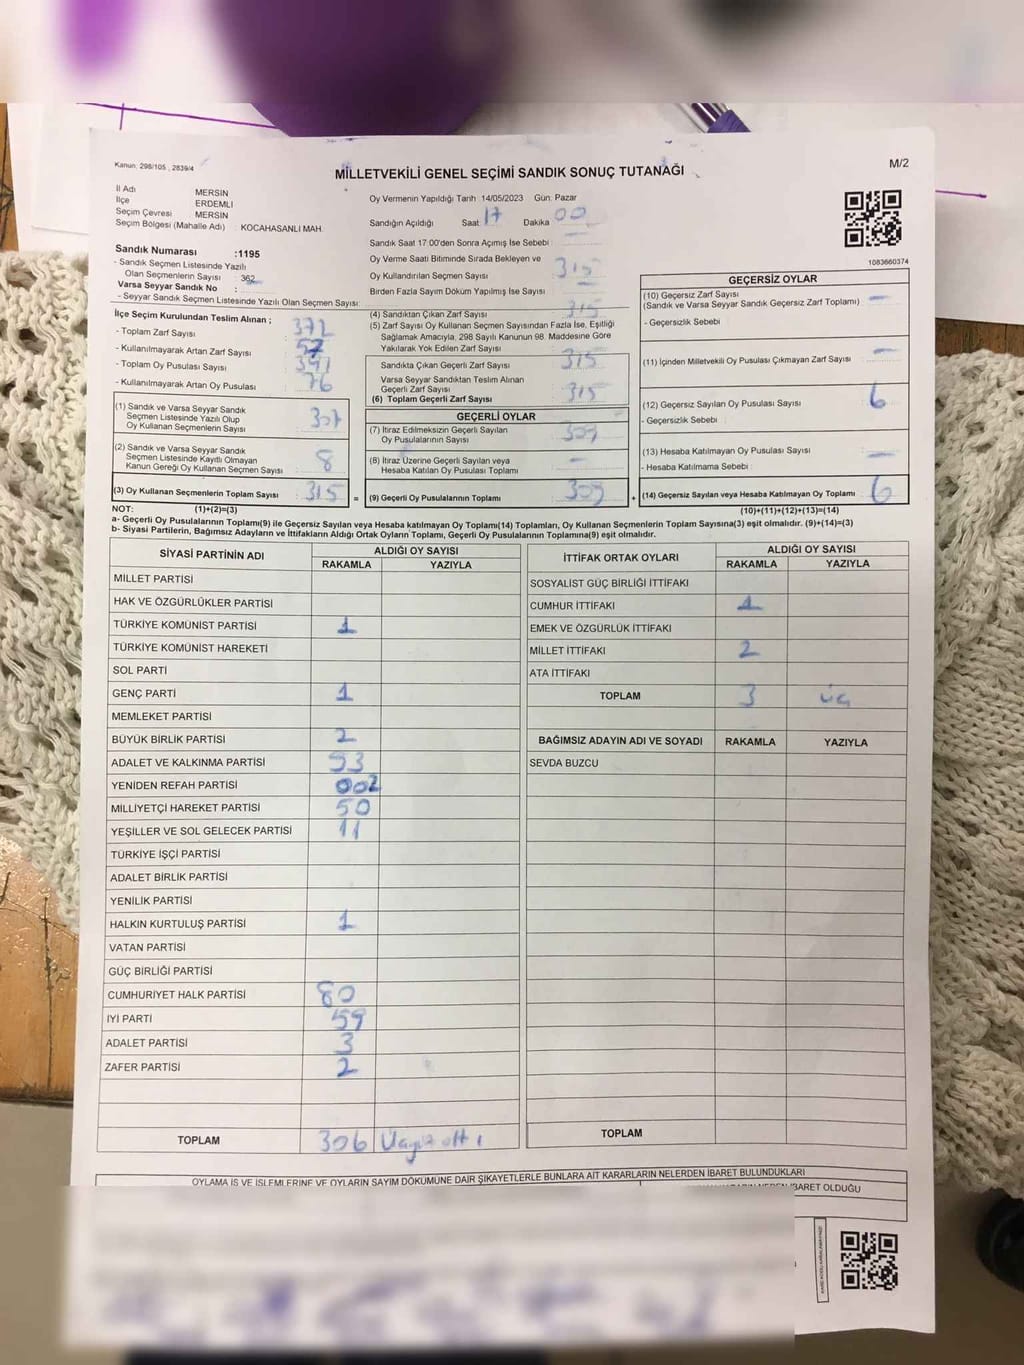 Kanun: 298/105 , 2839/4
MİLLETVEKİLİ GENEL SEÇİMİ SANDIK SONUÇ TUTANAĞI
M/2
İl Adı MERSİN
İlçe ERDEMLİ
Seçim Çevresi MERSİN
Seçim Bölgesi (Mahalle Adı) : KOCAHASANLI MAH.
Sandık Numarası :1195
- Sandık Seçmen Listesinde Yazılı
Olan Seçmenlerin Sayısı : 362
Varsa Seyyar Sandık No :
- Seyyar Sandık Seçmen Listesinde Yazılı Olan Seçmen Sayısı:
Oy Vermenin Yapıldığı Tarih :14/05/2023 Gün: Pazar
Sandığın Açıldığı Saat 17 Dakika 00
Sandık Saat 17:00'den Sonra Açımış İse Sebebi :
Oy Verme Saati Bitiminde Sırada Bekleyen ve
Oy Kullandırılan Seçmen Sayısı : 315
Birden Fazla Sayım Döküm Yapılmış İse Sayısı :
1083660374
İlçe Seçim Kurulundan Teslim Alınan ;
- Toplam Zarf Sayısı : 372
- Kullanılmayarak Artan Zarf Sayısı : 57
- Toplam Oy Pusulası Sayısı : 391
- Kullanılmayarak Artan Oy Pusulası : 76
(1) Sandık ve Varsa Seyyar Sandık
Seçmen Listesinde Yazılı Olup
Oy Kullanan Seçmenlerin Sayısı : 307
(2) Sandık ve Varsa Seyyar Sandık
Seçmen Listesinde Kayıtlı Olmayan
Kanun Gereği Oy Kullanan Seçmen Sayısı : 8
(3) Oy Kullanan Seçmenlerin Toplam Sayısı : 315
(4) Sandıktan Çıkan Zarf Sayısı : 315
(5) Zarf Sayısı Oy Kullanan Seçmen Sayısından Fazla İse, Eşitliği
Sağlamak Amacıyla, 298 Sayılı Kanunun 98. Maddesine Göre
Yakılarak Yok Edilen Zarf Sayısı :
Sandıkta Çıkan Geçerli Zarf Sayısı : 315
Varsa Seyyar Sandıktan Teslim Alınan
Geçerli Zarf Sayısı
(6) Toplam Geçerli Zarf Sayısı : 315
GEÇERLİ OYLAR
(7) İtiraz Edilmeksizin Geçerli Sayılan
Oy Pusulalarının Sayısı : 309
(8) İtiraz Üzerine Geçerli Sayılan veya
Hesaba Katılan Oy Pusulası Toplamı : -
= (9) Geçerli Oy Pusulalarının Toplamı : 309 +
GEÇERSİZ OYLAR
(10) Geçersiz Zarf Sayısı : -
(Sandık ve Varsa Seyyar Sandık Geçersiz Zarf Toplamı)
- Geçersizlik Sebebi :
(11) İçinden Milletvekili Oy Pusulası Çıkmayan Zarf Sayısı : -
(12) Geçersiz Sayılan Oy Pusulası Sayısı : 6
- Geçersizlik Sebebi :
(13) Hesaba Katılmayan Oy Pusulası Sayısı : -
- Hesaba Katılmama Sebebi :
(14) Geçersiz Sayılan veya Hesaba Katılmayan Oy Toplamı : 6
NOT: (1)+(2)=(3) (10)+(11)+(12)+(13)=(14)
a- Geçerli Oy Pusulalarının Toplamı(9) ile Geçersiz Sayılan veya Hesaba katılmayan Oy Toplamı(14) Toplamları, Oy Kullanan Seçmenlerin Toplam Sayısına(3) eşit olmalıdır. (9)+(14)=(3)
b- Siyasi Partilerin, Bağımsız Adayların ve İttifakların Aldığı Ortak Oyların Toplamı, Geçerli Oy Pusulalarının Toplamına(9) eşit olmalıdır.
SİYASİ PARTİNİN ADI ALDIĞI OY SAYISI
RAKAMLA YAZIYLA
MİLLET PARTİSİ
HAK VE ÖZGÜRLÜKLER PARTİSİ
TÜRKİYE KOMÜNİST PARTİSİ 1
TÜRKİYE KOMÜNİST HAREKETİ
SOL PARTİ
GENÇ PARTİ 1
MEMLEKET PARTİSİ
BÜYÜK BİRLİK PARTİSİ 2
ADALET VE KALKINMA PARTİSİ 93
YENİDEN REFAH PARTİSİ 002
MİLLİYETÇİ HAREKET PARTİSİ 50
YEŞİLLER VE SOL GELECEK PARTİSİ 11
TÜRKİYE İŞÇİ PARTİSİ
ADALET BİRLİK PARTİSİ
YENİLİK PARTİSİ
HALKIN KURTULUŞ PARTİSİ 1
VATAN PARTİSİ
GÜÇ BİRLİĞİ PARTİSİ
CUMHURİYET HALK PARTİSİ 80
İYİ PARTİ 59
ADALET PARTİSİ 3
ZAFER PARTİSİ 2
TOPLAM 306
İTTİFAK ORTAK OYLARI ALDIĞI OY SAYISI
RAKAMLA YAZIYLA
SOSYALİST GÜÇ BİRLİĞİ İTTİFAKI
CUMHUR İTTİFAKI 1
EMEK VE ÖZGÜRLÜK İTTİFAKI
MİLLET İTTİFAKI 2
ATA İTTİFAKI
TOPLAM 3 üç
BAĞIMSIZ ADAYIN ADI VE SOYADI RAKAMLA YAZIYLA
SEVDA BUZCU
TOPLAM
OYLAMA İŞ VE İŞLEMLERİNE VE OYLARIN SAYIM DÖKÜMÜNE DAİR ŞİKAYETLERLE BUNLARA AİT KARARLARIN NELERDEN İBARET BULUNDUKLARI
İBARET OLDUĞU